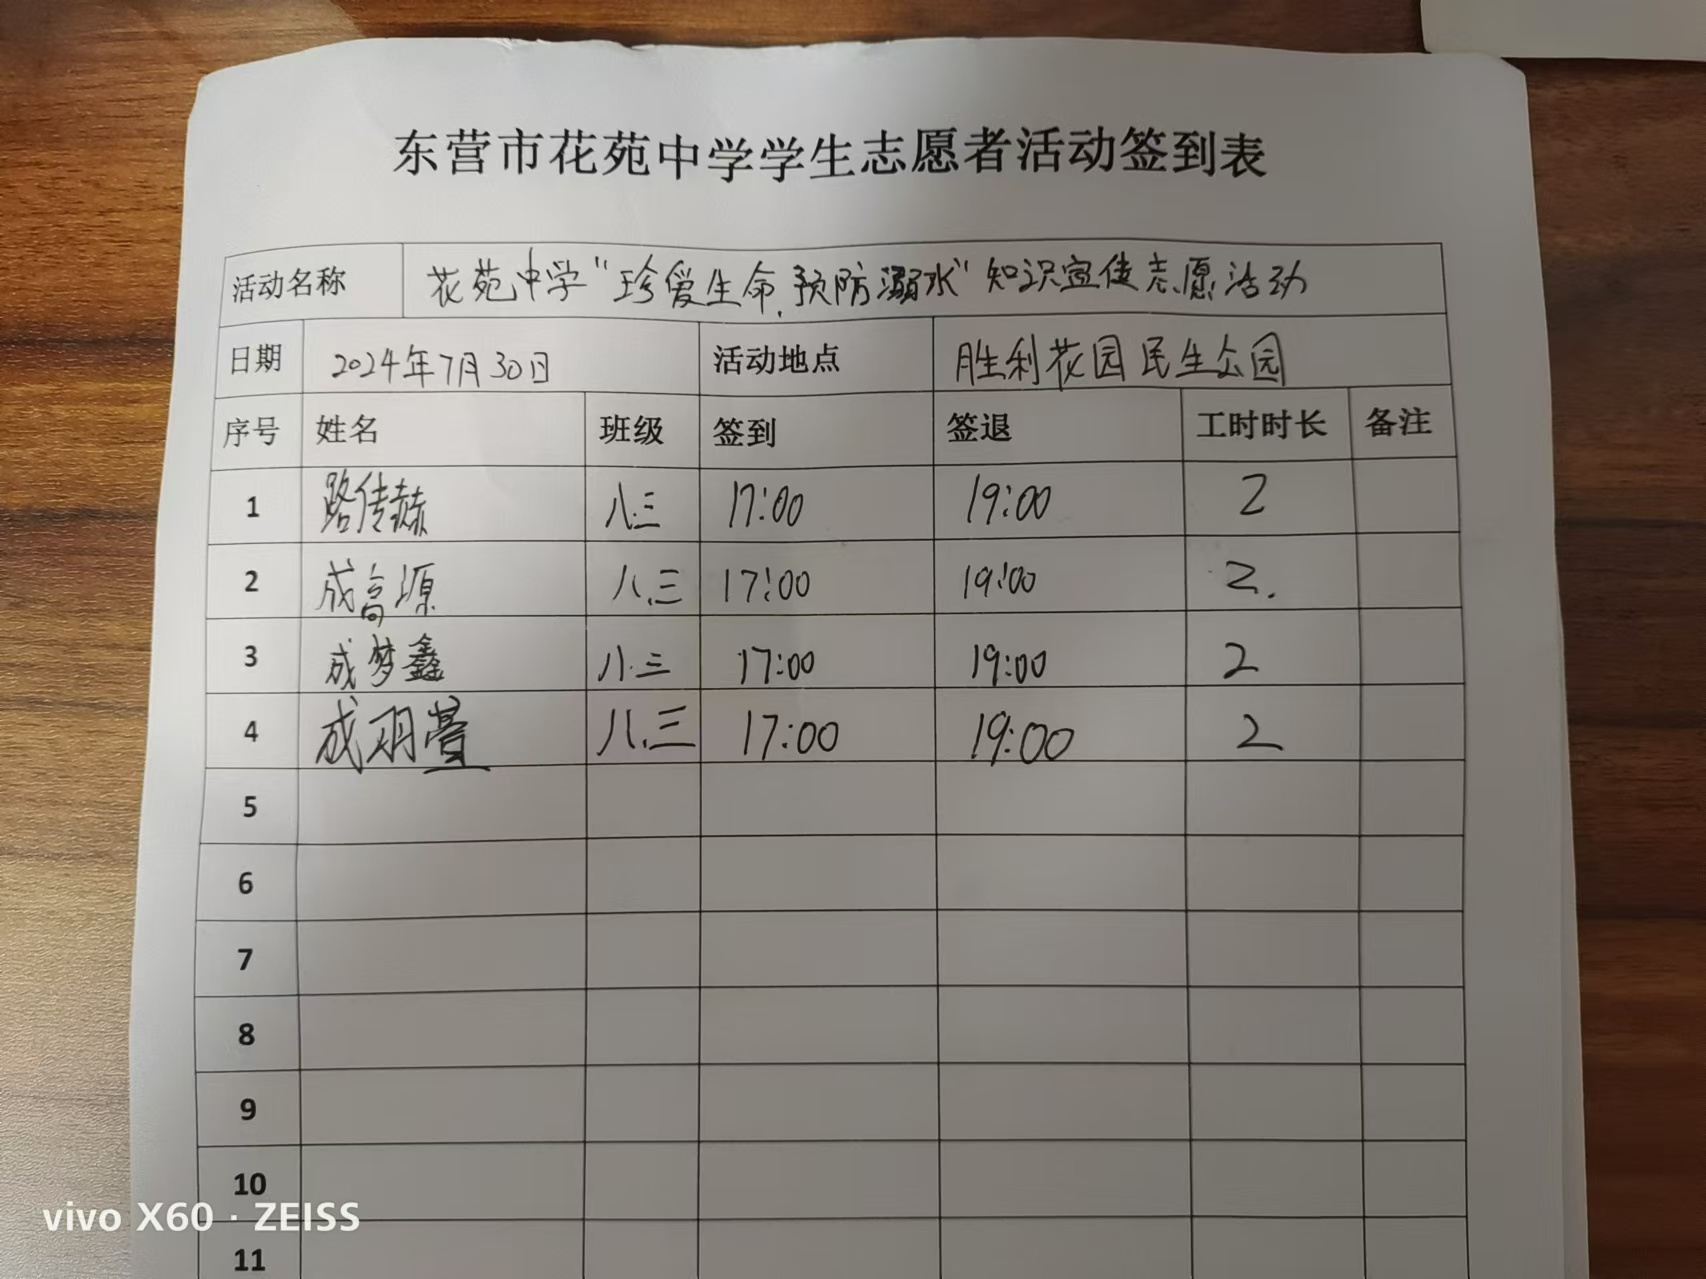 东营市花苑中学学生志愿者活动签到表
活动名称 花苑中学“珍爱生命,预防溺水”知识宣传志愿活动
日期 2024年7月30日 活动地点 胜利花园民生公园
序号 姓名 班级 签到 签退 工时时长 备注
1 路传赫 八.三 17:00 19:00 2
2 成高源 八.三 17:00 19:00 2.
3 成梦鑫 八.三 17:00 19:00 2
4 成羽萱 八.三 17:00 19:00 2
5
6
7
8
9
10
11
vivo X60 · ZEISS